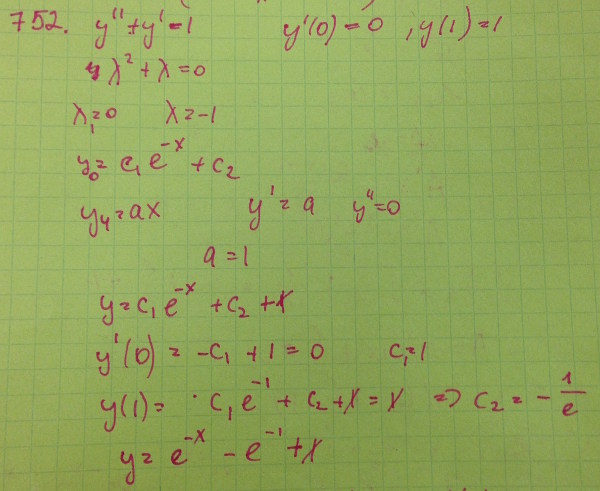 752. y'' + y' = 1 y'(0) = 0 , y(1) = 1
λ² + λ = 0
λ₁ = 0 λ = -1
y₀ = c₁ e^{-x} + c₂
y₄ = ax y' = a y'' = 0
a = 1
y = c₁ e^{-x} + c₂ + x
y'(0) = -c₁ + 1 = 0 c₁ = 1
y(1) = c₁ e^{-1} + c₂ + 1 = 1 => c₂ = -1/e
y = e^{-x} - e^{-1} + x